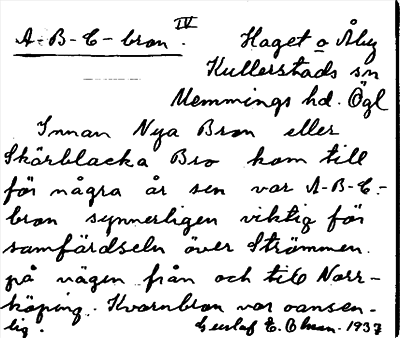 IV
A-B-C-bron. Haget o Åby
Kullerstads sn
Memmings hd. Ögl
Innan Nya Bron eller
Skärblacka Bro kom till
för några år sen var A-B-C-
bron synnerligen viktig för
samfärdseln över Strömmen.
på vägen från och till Norr-
köping. Kvarnbron var oansen-
lig. Gustaf E. Olsson. 1937